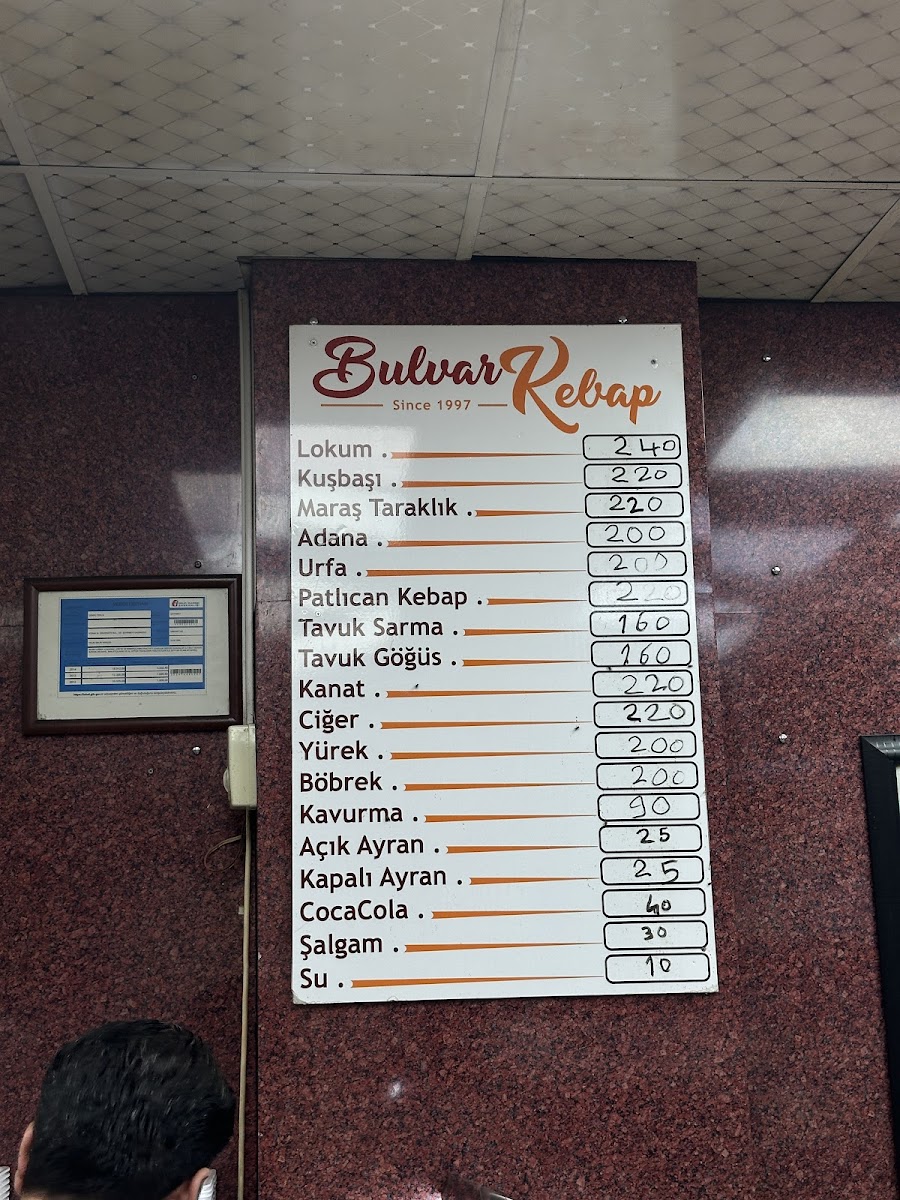 Bulvar Kebap
Since 1997
Lokum . 240
Kuşbaşı . 220
Maraş Taraklık . 220
Adana . 200
Urfa . 200
Patlıcan Kebap . 220
Tavuk Sarma . 160
Tavuk Göğüs . 160
Kanat . 220
Ciğer . 220
Yürek . 200
Böbrek . 200
Kavurma . 90
Açık Ayran . 25
Kapalı Ayran . 25
CocaCola . 40
Şalgam . 30
Su . 10